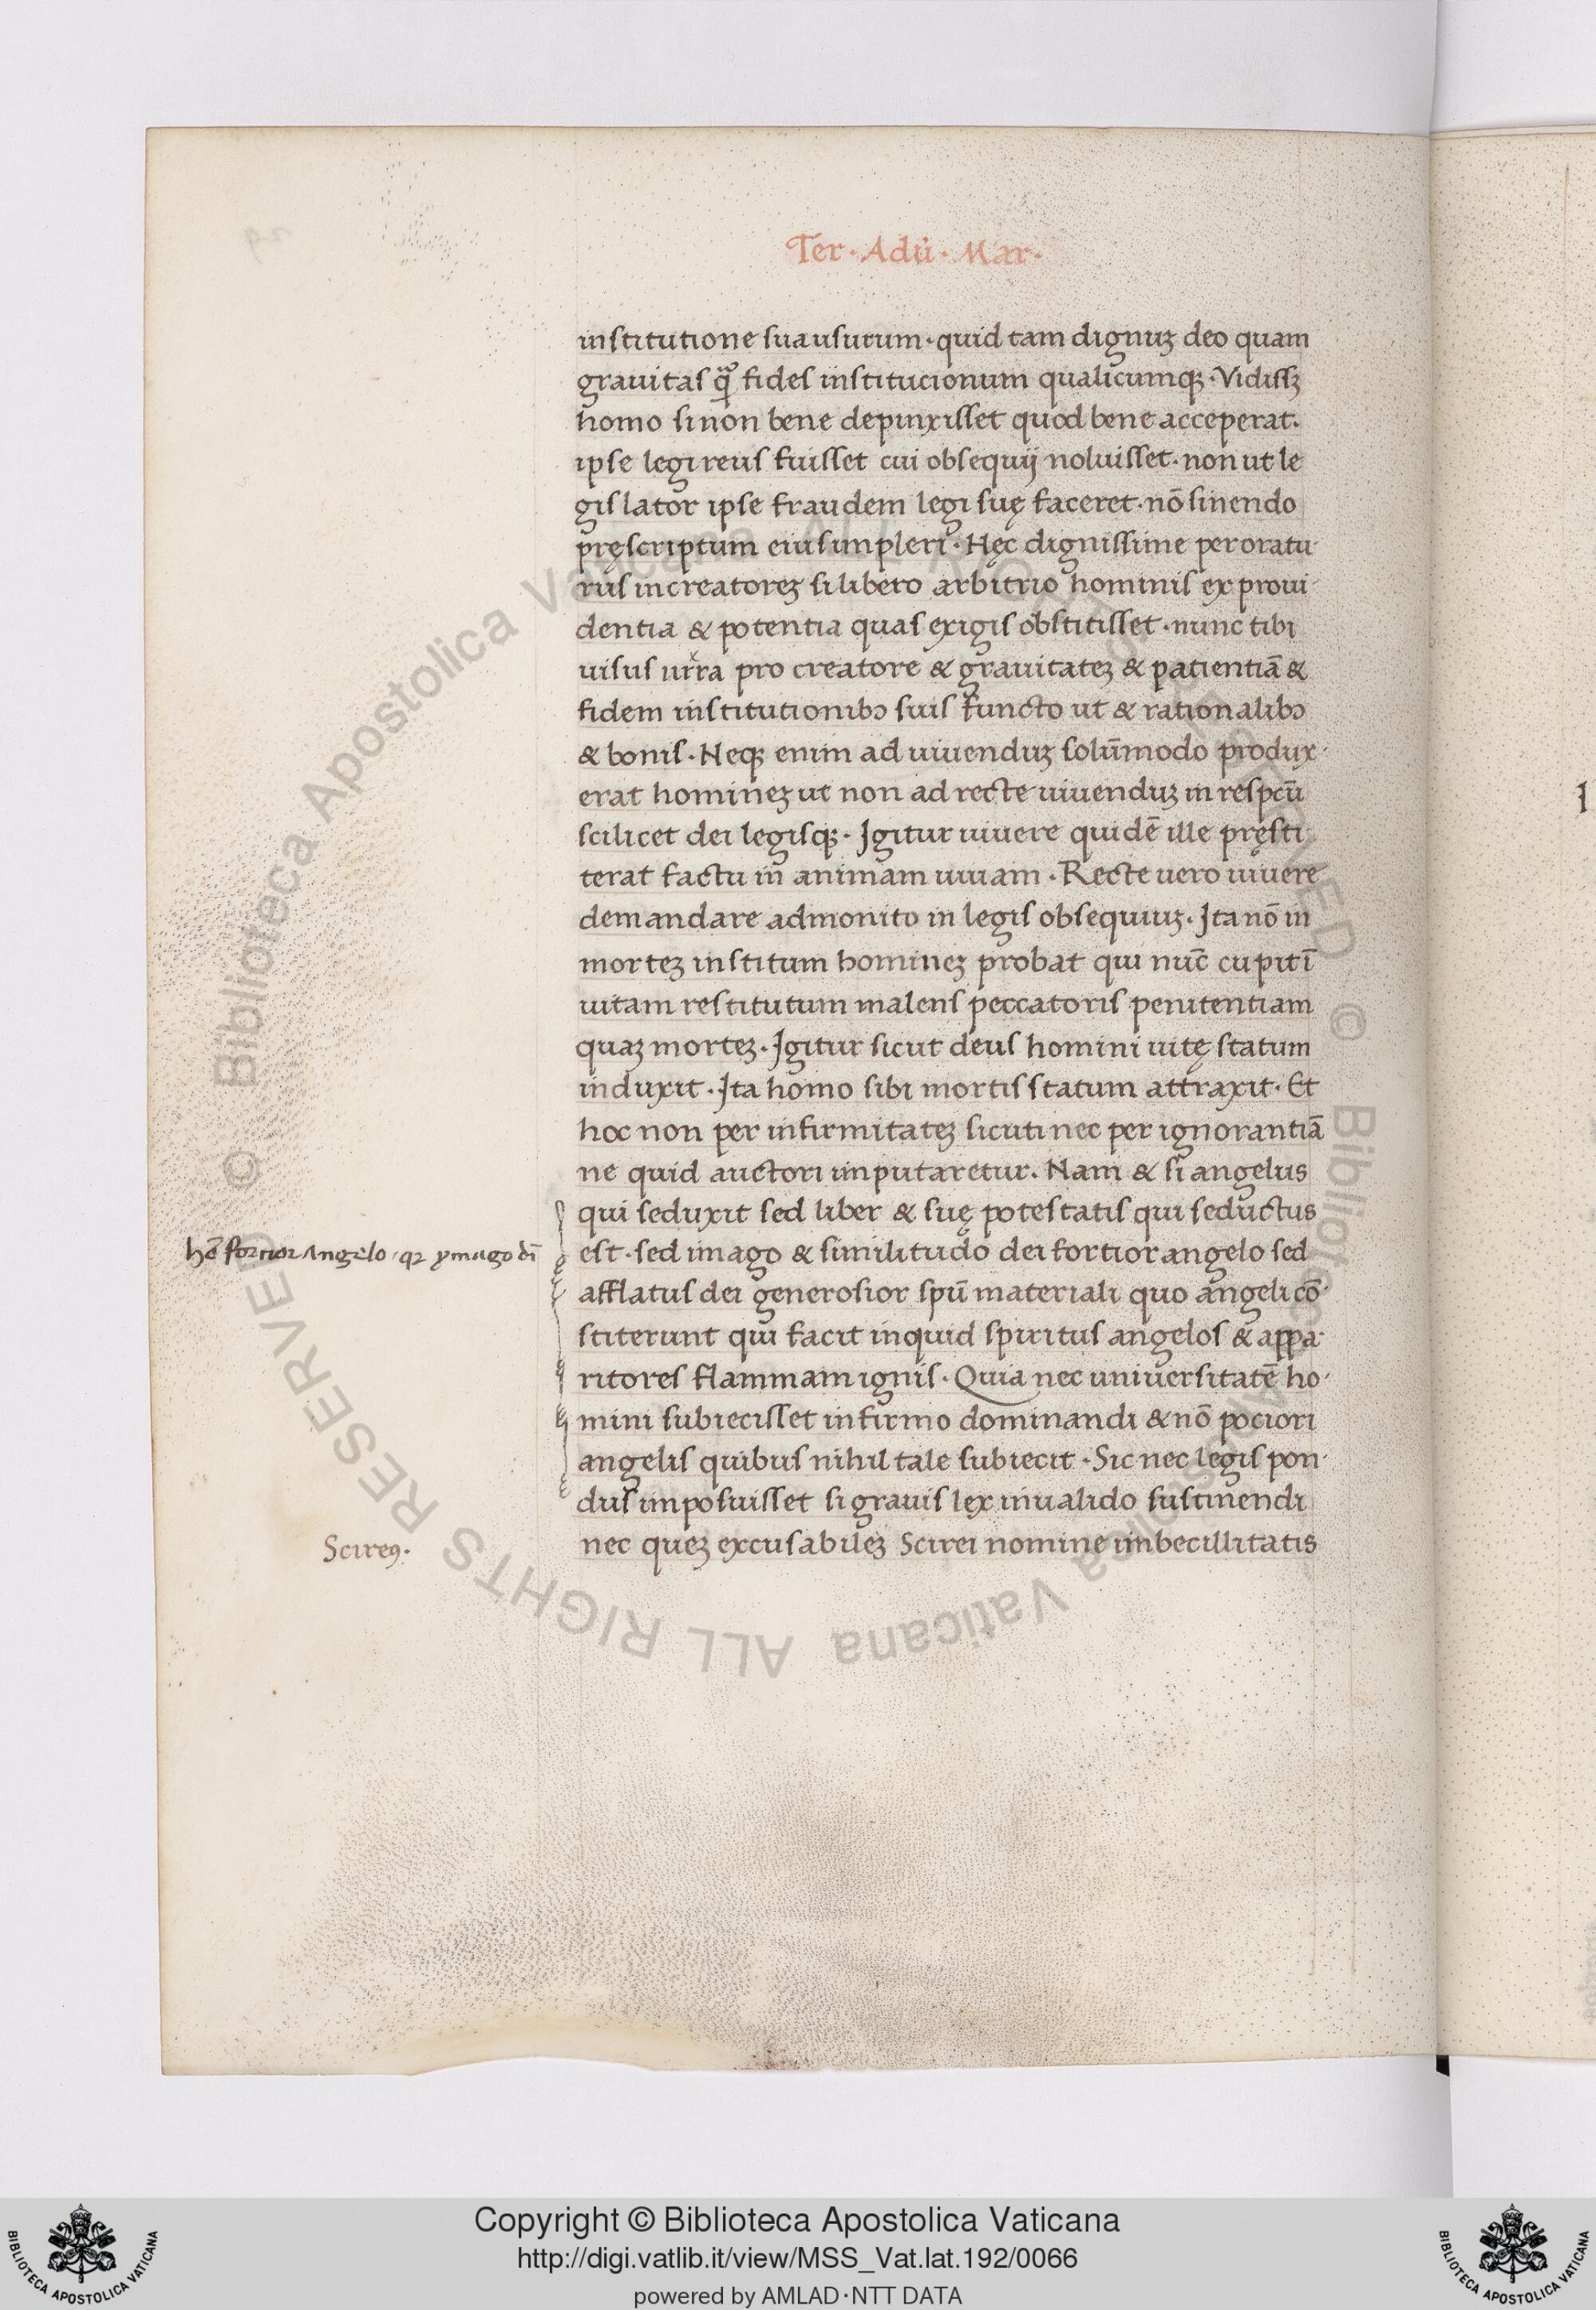 Ter · Adũ · Mar ·
institutione sua usurum · quid tam dignuꝫ deo quam
grauitas q̃ fides institucionum qualicumqꝫ · Vidissꝫ
homo si non bene depinxisset quod bene acceperat.
ipse legi reus fuisset cui obsequij noluisset · non ut le
gis lator ipse fraudem legi suę faceret · nō sinendo
pręscriptum eius impleri · Hęc dignissime peroratu-
rus in creatoreꝫ si libero arbitrio hominis ex proui-
dentia & potentia quas exigis obstitisset · nunc tibi
uisus urra pro creatore & grauitateꝫ & patientiā &
fidem institutionibɔ suis functo ut & rationalibɔ
& bonis · Neqꝫ enim ad uiuenduꝫ solūmodo produx-
erat homineꝫ ut non ad recte uiuenduꝫ in respcū
scilicet dei legisqꝫ · Igitur uiuere quidē ille pręsti
terat factu in animam uiuam · Recte uero uiuere
demandare admonito in legis obsequiuꝫ · Ita nō in
morteꝫ institum homineꝫ probat qui nūc cupit ī
uitam restitutum malens peccatoris penitentiam
quaꝫ morteꝫ · Igitur sicut deus homini uitę statum
induxit · Ita homo sibi mortis statum attraxit · Et
hoc non per infirmitateꝫ sicuti nec per ignorantiā
ne quid auctori imputaretur. Nam & si angelus
qui seduxit sed liber & suę potestatis qui seductus
hō fortior Angelo · qꝛ ymago dī
est · sed imago & similitudo dei fortior angelo sed
afflatus dei generosior spū materiali quo angeli cō-
stiterunt qui facit inquid spiritus angelos & appa-
ritores flammam ignis · Quia nec uniuersitatē ho-
mini subiecisset infirmo dominandi & nō pociori
angelis quibus nihil tale subiecit · Sic nec legis pon-
dus imposuisset si grauis lex inualido sustinendi
Scireꝯ.
nec queꝫ excusabileꝫ Scirei nomine imbecillitatis
Copyright © Biblioteca Apostolica Vaticana
http://digi.vatlib.it/view/MSS_Vat.lat.192/0066
powered by AMLAD·NTT DATA